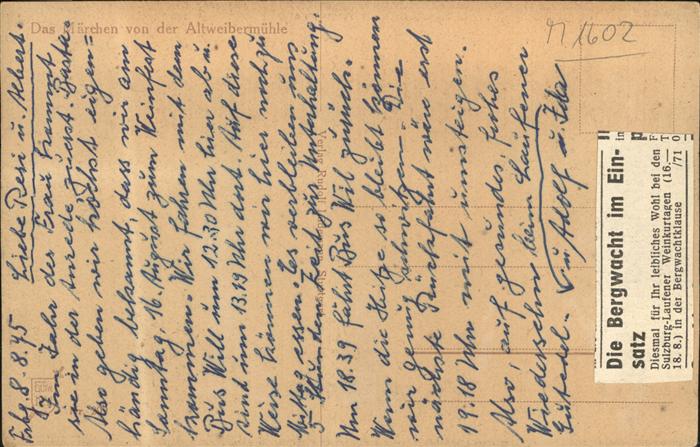 Das Märchen von der Altweibermühle
M 1602
Frbg. 8.8.75 Liebe Resi u. Albert.
Im Jahr der Frau kommt
sie in der Anrede zuerst. Basta.
Also geben wir höchst eigen=
händig bekannt, dass wir am
Samstag, 16. August zum Weinfest
kommen. Wir fahren mit dem
Bus Will um 12.30 Uhr hier ab u.
sind um 13.19 Uhr dort. Auf diese
Weise können wir hier noch zu
Mittag essen. Es verbleiben uns
5 Stunden Zeit zur Unterhaltung.
Um 18.39 fährt Bus Will zurück.
Wenn die Hitze so bleibt können
wir genug schwitzen. Die
nächste Rückfahrt wäre erst
19.18 Uhr mit umsteigen.
Also, auf gesundes, frohes
Wiedersehn beim Laufener
Gutedel. Adolf u.
Die Bergwacht im Ein-
satz
Diesmal für Ihr leibliches Wohl bei den
Sulzburg-Laufener Weinkurtagen (16.—
18. 8.) in der Bergwachtklause /71